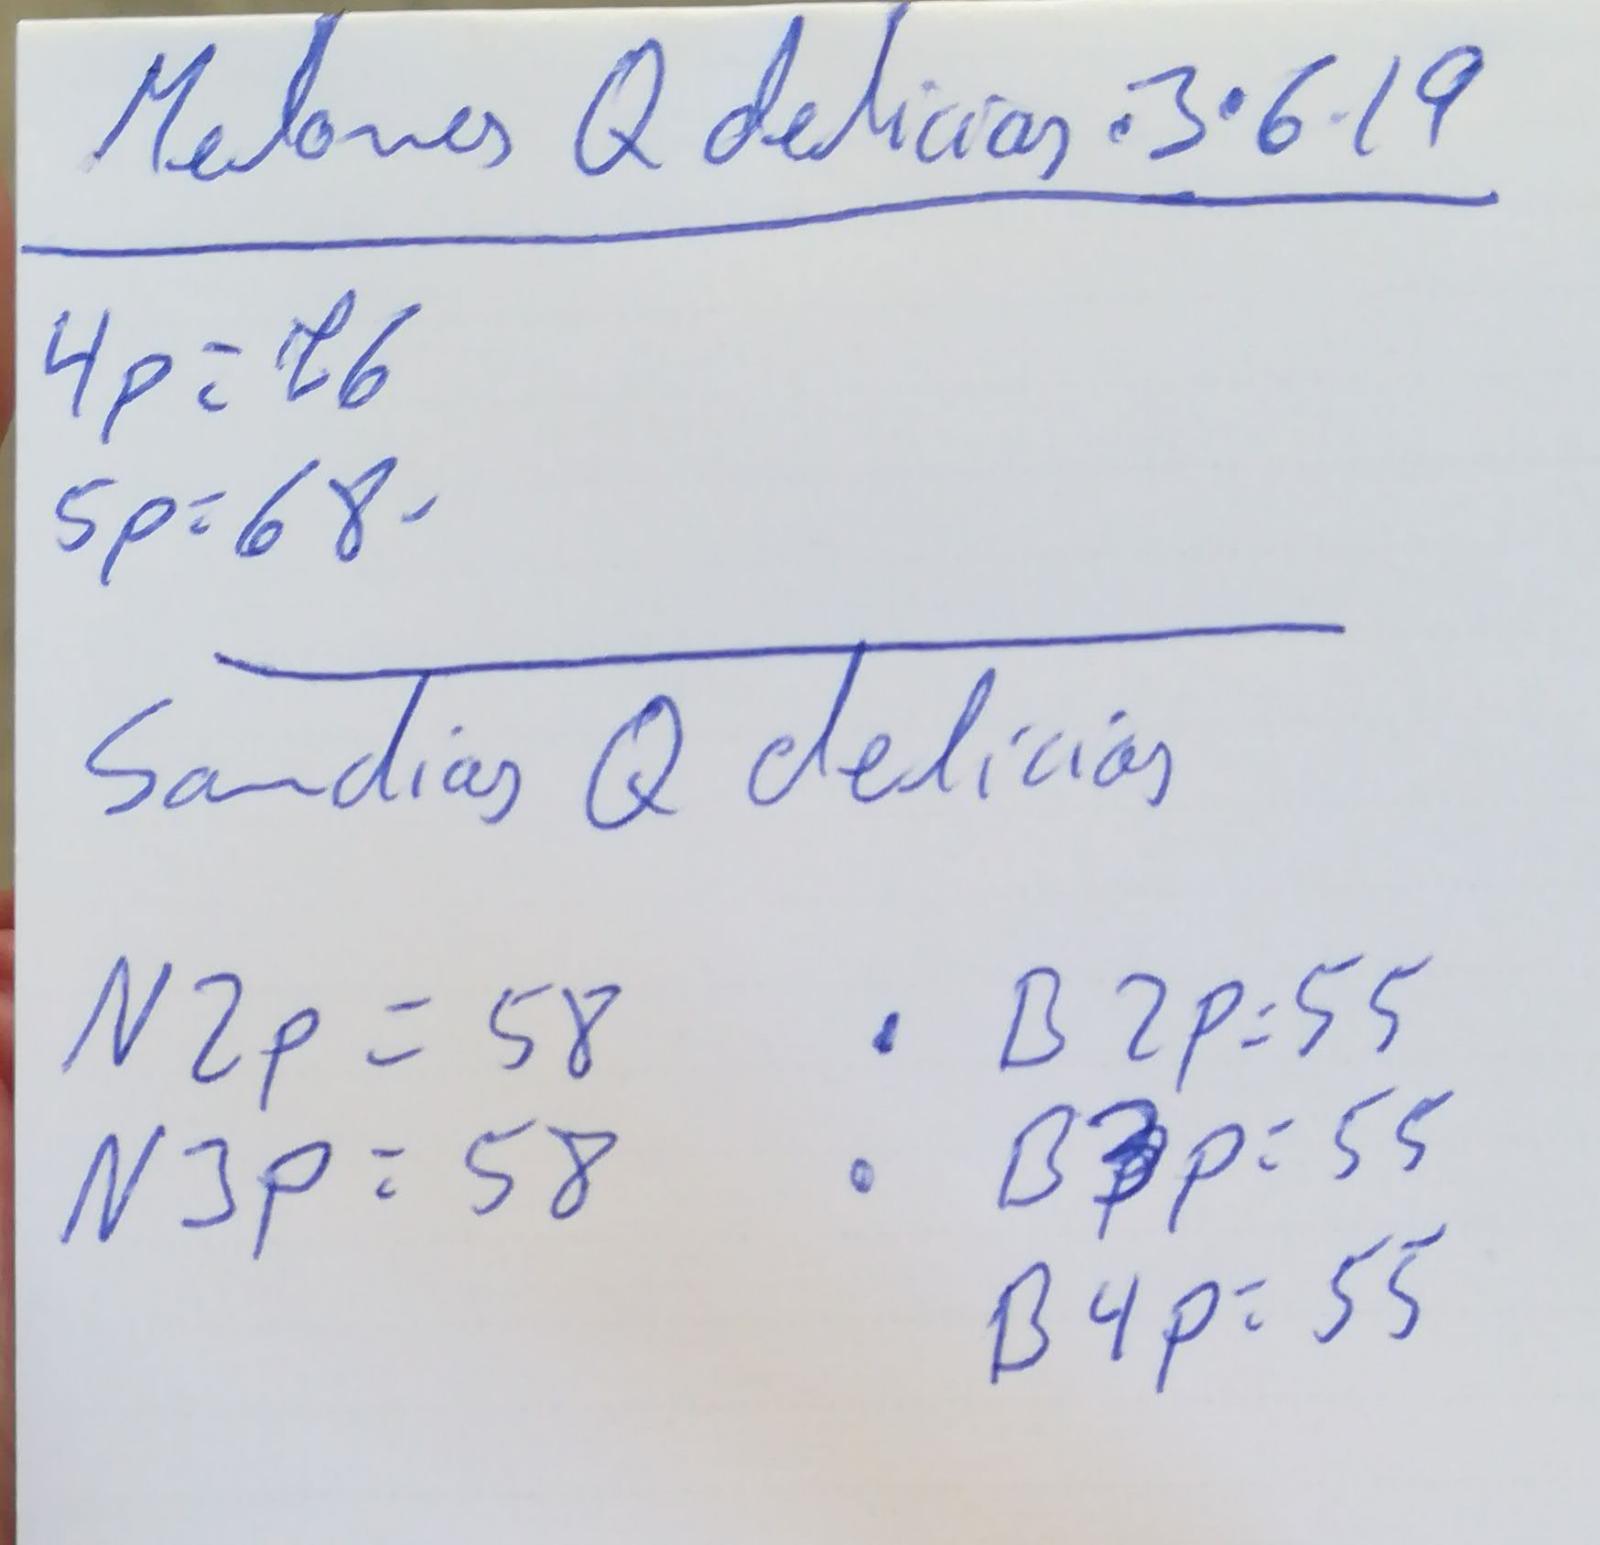 Melones Q delicias . 3.6.19
4p = 76
5p = 68.
Sandias Q delicias
N 2p = 58 . B 2p = 55
N 3p = 58 . B 3p = 55
B 4p = 55